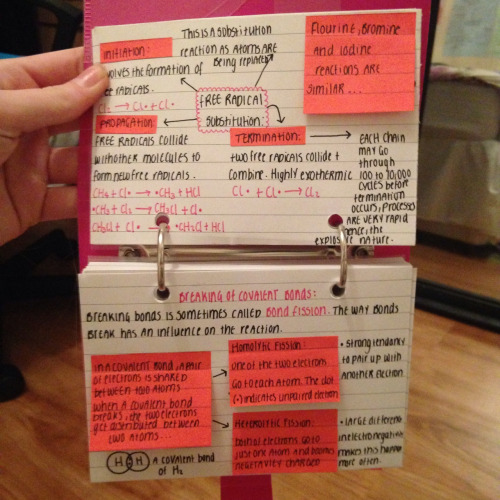 THIS IS A SUBSTITUTION
REACTION AS ATOMS ARE
BEING REPLACED
INITIATION:
INVOLVES THE FORMATION OF
FREE RADICALS.
Cl₂ → Cl• + Cl•
FREE RADICAL
SUBSTITUTION:
Flourine, Bromine
and iodine
reactions are
similar...
PROPAGATION:
FREE RADICALS COLLIDE
with other molecules to
form new free radicals.
CH₄ + Cl• → •CH₃ + HCl
•CH₃ + Cl₂ → CH₃Cl + Cl•
CH₃Cl + Cl• → •CH₂Cl + HCl
TERMINATION:
two free radicals collide +
combine. Highly exothermic
Cl• + Cl• → Cl₂
EACH CHAIN
MAY GO
through
100 to 10,000
cycles before
termination
occurs, processes
ARE VERY RAPID
hence, the
explosive nature.
BREAKING OF COVALENT BONDS:
BREAKING BONDS IS SOMETIMES CALLED BOND FISSION. THE WAY BONDS
BREAK HAS AN INFLUENCE ON THE REACTION.
IN A COVALENT BOND, A PAIR
OF ELECTRONS IS SHARED
BETWEEN TWO ATOMS
WHEN A COVALENT BOND
BREAKS, the two electrons
get distributed between
two atoms...
H H A COVALENT BOND
OF H₂
Homolytic Fission:
One of the two electrons
Go to each atom. The dot
(•) indicates unpaired electron
• Strong tendancy
to pair up with
another electron.
Heterolytic Fission:
both electrons go to
just one atom and becomes
negetavely charged
• LARGE different
in electronegativi
makes this happen
more often.